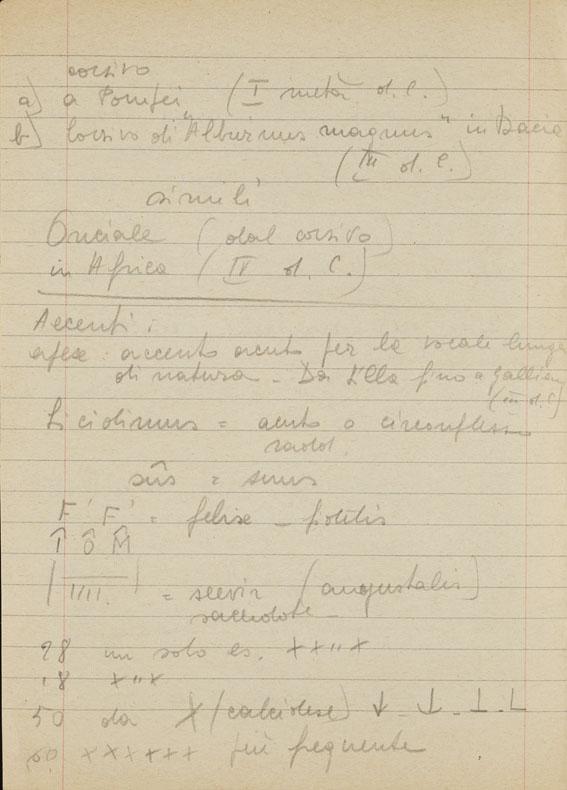 corsivo
a) a Pompei (I metà d. C.)
b) Corsivo di "Alburnus magnus" in Dacia
(III d. C.)
simili
Onciale (dal corsivo)
in Africa (IV d. C.)
Accenti:
apex: accento acuto per la vocale lunga
di natura - Da Silla fino a Gallieno
(III d. C.)
Sicidinus = acuto o circonflesso
sûs = suus
F' F' =
Î Ô M̂
|IIII.| = sevir (augustalis)
sacerdote
28 un solo es. XXIIX
18 XIIX
50 da X (calcidese) ↓ - ⊥ - ⊥ - L
60 XXXXXX più frequente